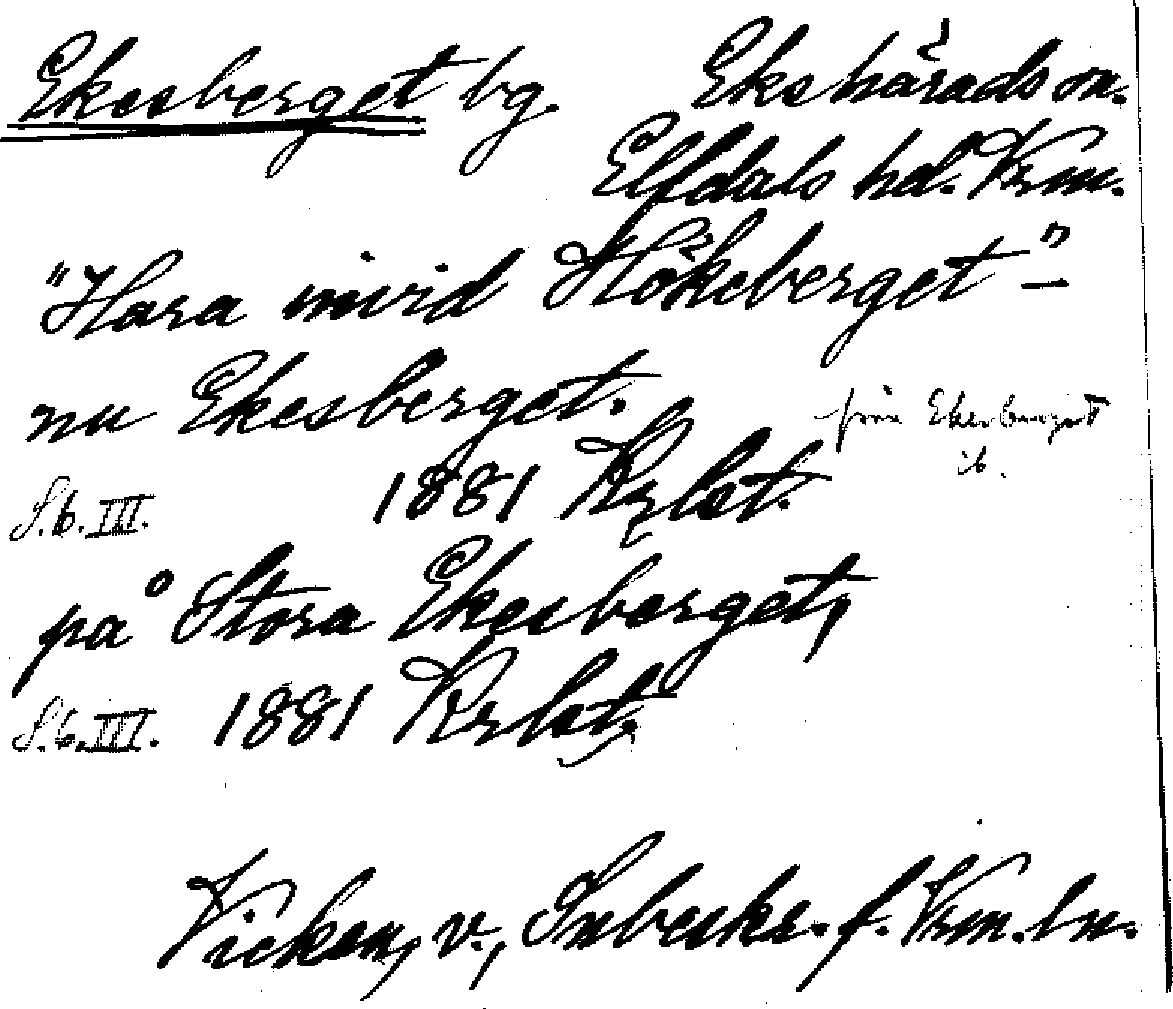 Ekesberget bg. Ekshärads sn.
Elfdals hd. Vrm.
"Hara invid Hökeberget" –
nu Ekesberget.
från Ekesberget
ib.
S.6.III. 1881 Krlat.
på Stora Ekesberget,
S.6.III. 1881 Krlat.
v., f. Vrm. ln.